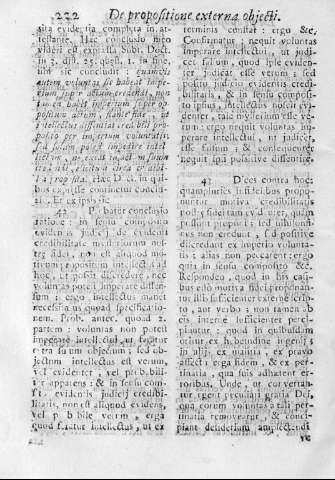 222 De propositione externa objecti.
sita evidentia completa in at-
testante. Hæc conclusio mihi
videri est expressa Subt. Doct.
in 3. dist. 25. quæst. 1. in fine,
sic concludit: quamvis
autem voluntas se habeat impe-
non
opositum actum, stante fide, ut
intellectus dissentiat credibili pro-
posito per imperium voluntatis;
sed solum potest impedire intel-
Doct. in qui-
bus expresse continetur conclu-
sio. Et ex ipsis sic
42. Probatur conclusio
ratione: in sensu composito
evidentis judicij de evidenti
credibilitate mysteriorum nos-
træ fidei, non est aliquod mo-
tivum proponens intellectui ad
hoc, ut possit discredere, nec
voluntas potest imperare dissen-
sum: ergo intellectus manet
necessitatus quoad specificatio-
nem. Prob. anter. quoad 2.
partem: voluntas non potest
imperare intellectui, ut feratur
extra suum objectum; sed ob-
jectum intellectus est verum,
vel evidenter, vel probabili-
ter apparens: & in sensu com-
posito evidentis judicij credibi-
litatis, non est aliquod evidens,
vel probabile verum, ergo
quod feratur intellectus, ut ex
terminis constat: ergo &c.
Confirmatur: nequit voluntas
imperare intellectui, ut judi-
cet falsum, quod ipse eviden-
ter judicat esse verum; sed
posito judicio evidentis credi-
bilitatis, & in sensu composi-
to ipsius, intellectus noscit evi-
denter, tale mysterium esse ve-
rum: ergo nequit voluntas im-
perare intellectui, ut judicet,
esse falsum; & consequenter
nequit sibi positive dissentire.
43. Dices contra hoc:
quamplures infideles propo-
nuntur motiva credibilitatis
nostræ fidei tam evidenter, quam
possunt proponi; sed nihilomi-
nus non credunt, sed positive
discredunt ex imperio volunta-
tis: alias non peccarent: ergo
quia in sensu composito &c.
Respondeo, quod in his casi-
bus esto motiva fidei proponan-
tur illis sufficienter externe scrip-
to, aut verbo: non tamen ab
eis interne sufficienter perci-
piantur; quod in quibusdam
oritur ex hebetudine ingenij;
in alijs ex malitia, ex pravo
affectu erga fidem, & ex per-
tinatia, qua suis adhærent er-
roribus. Unde, ut convertan-
tur egent peculiari gratia Dei,
qua eorum voluntas a tali per-
tinatia removeatur, & conci-
piant desiderium amplectendi
ve